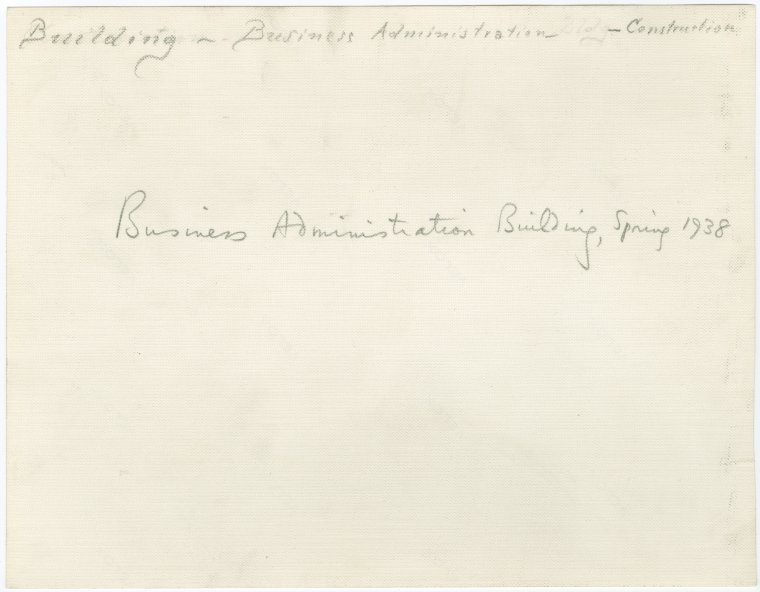 Building - Business Administration - Bldg - Construction
Business Administration Building, Spring 1938